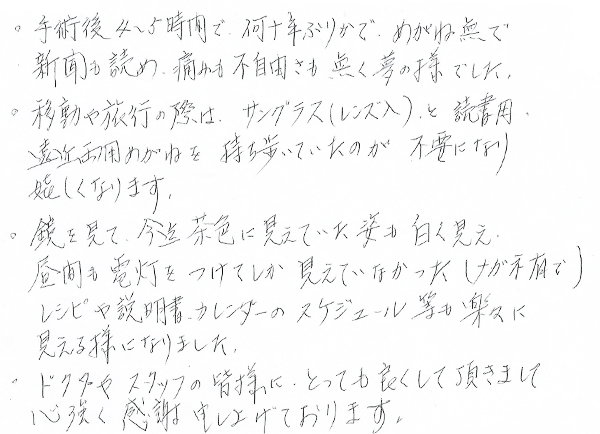 。手術後4~5時間で、何十年ぶりかで、めがね無で
新聞も読め、痛みも不自由さも無く夢の様でした。
。移動や旅行の際は、サングラス(レンズ入)、と読書用、
遠近両用めがねを持ち歩いていたのが不要になり
嬉しくなります。
。鏡を見て、今迄茶色に見えていた姿も白く見え、
昼間も電灯をつけてしか見えていなかった
レシピや説明書、カレンダーのスケジュール等も楽々に
見える様になりました。
。ドクターやスタッフの皆様に、とっても良くして頂きまして
心強く感謝申し上げております。